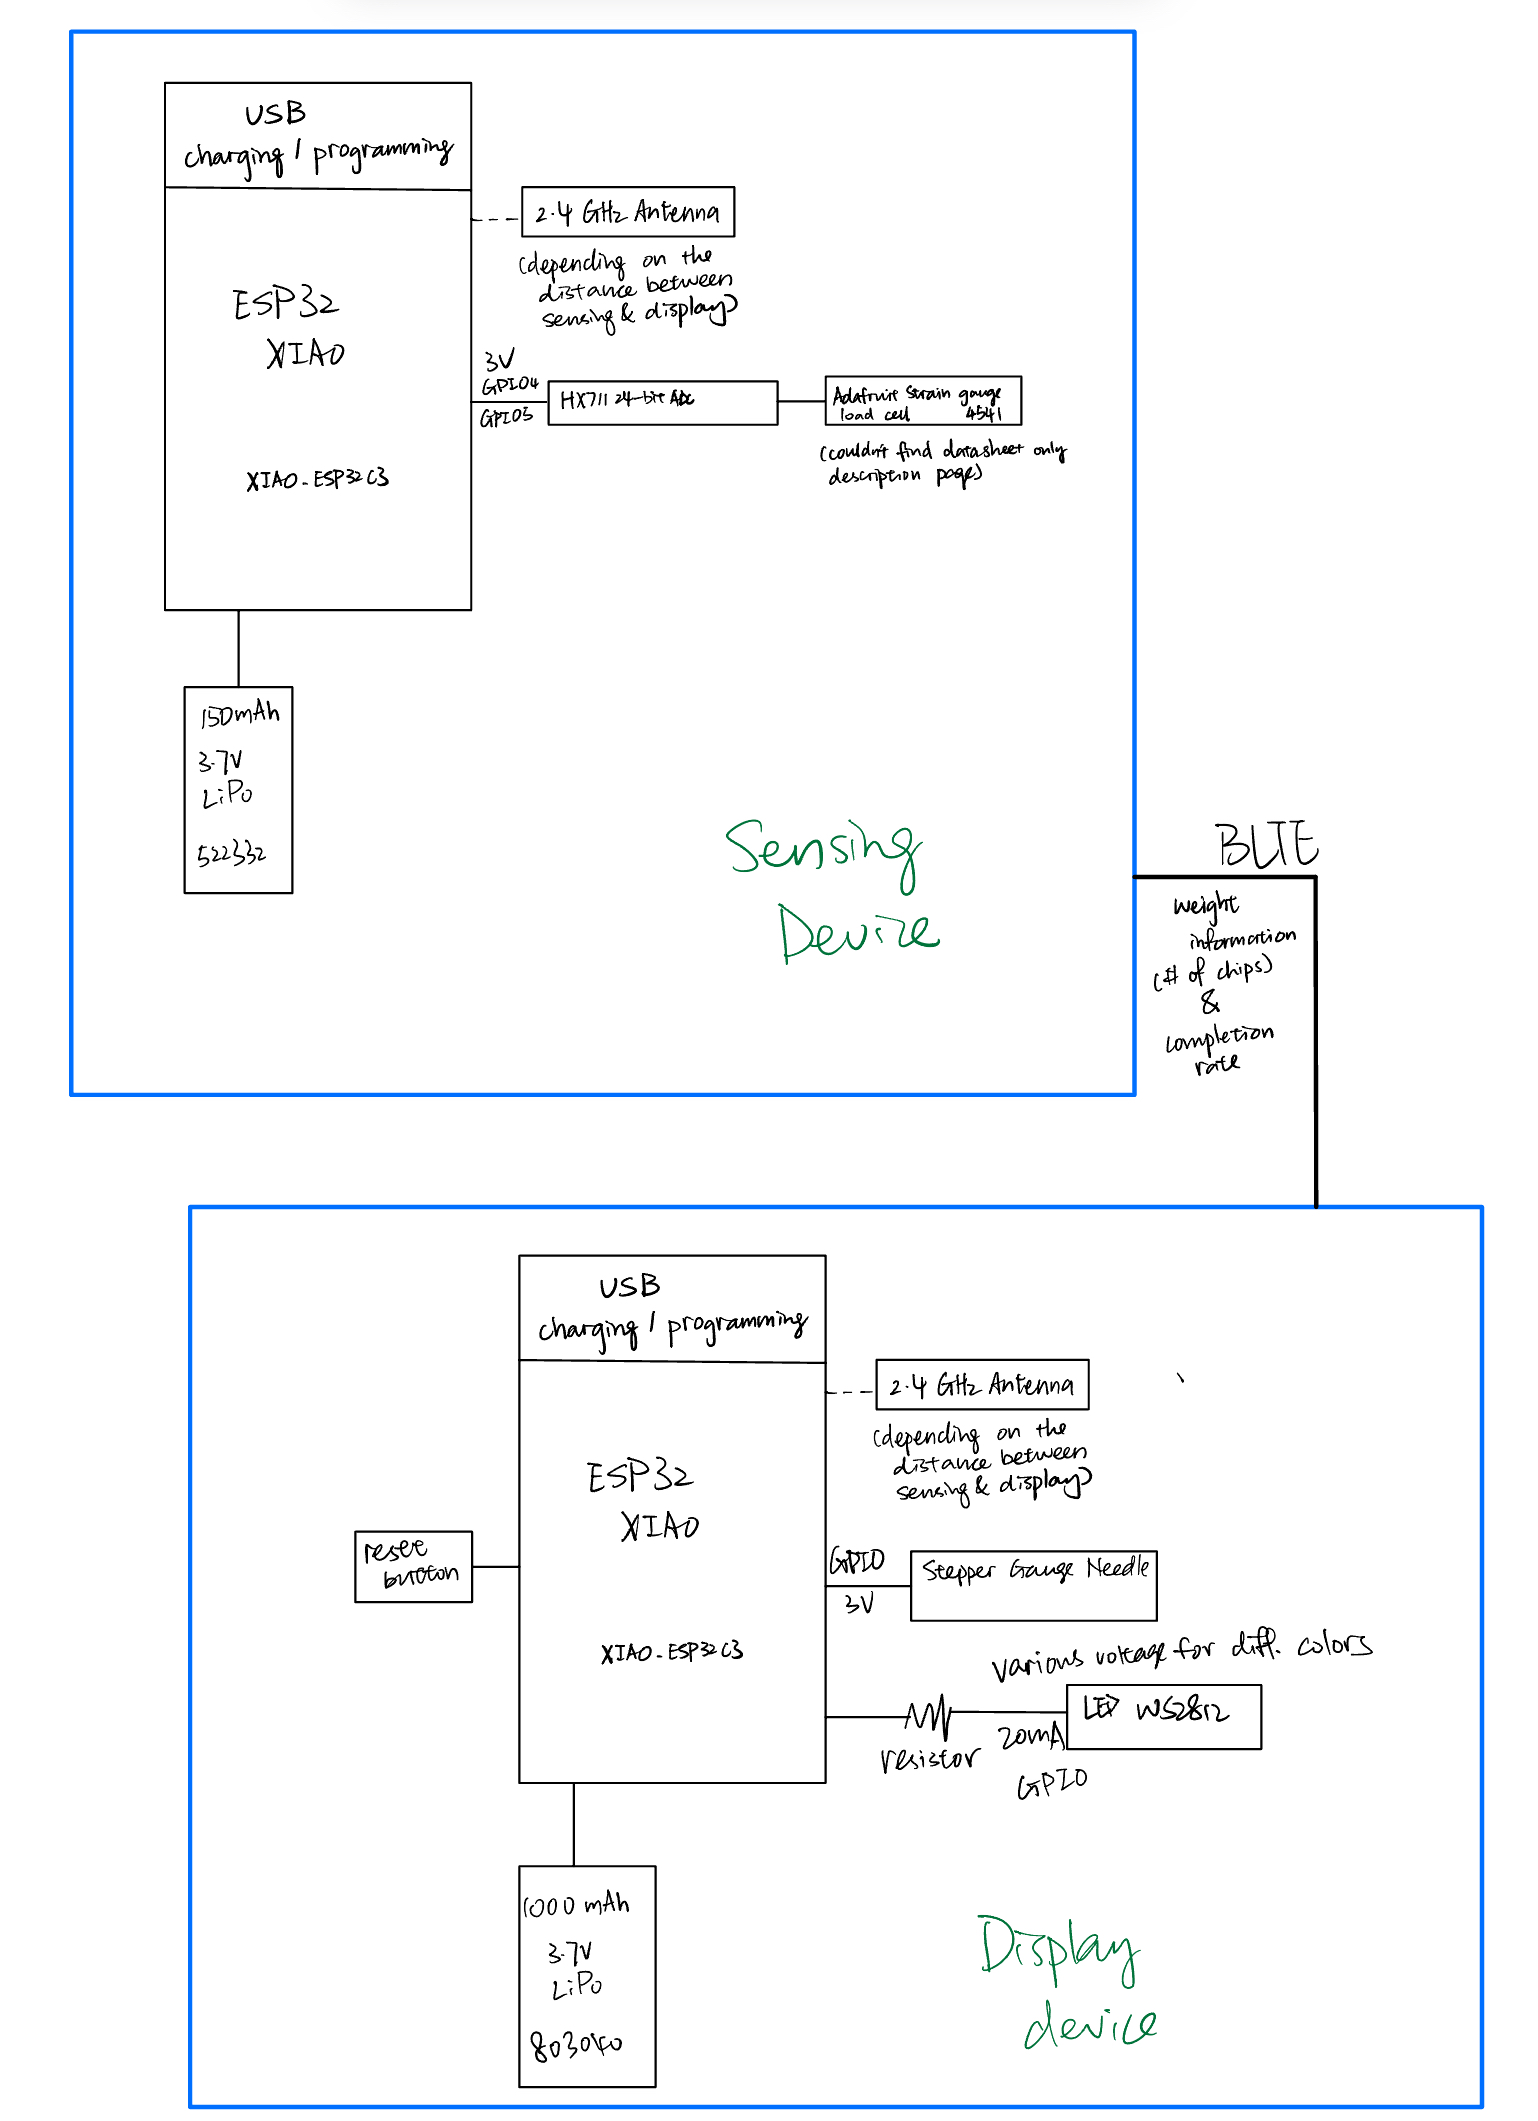 USB
charging / programming
2.4 GHz Antenna
(depending on the
distance between
sensing & display)
ESP32
XIAO
3V
GPIO4
GPIO5
HX711 24-bit ADC
Adafruit Strain gauge
load cell 4541
(couldn't find datasheet only
description page)
XIAO-ESP32C3
150mAh
3.7V
LiPo
522332
Sensing
Device
BLTE
weight
information
(# of chips)
&
completion
rate
USB
charging / programming
2.4 GHz Antenna
(depending on the
distance between
sensing & display)
ESP32
XIAO
reset
button
GPIO
3V
Stepper Gauge Needle
XIAO-ESP32C3
various voltage for diff. colors
LED WS2812
resistor
20mA
GPIO
1000 mAh
3.7V
LiPo
803040
Display
device